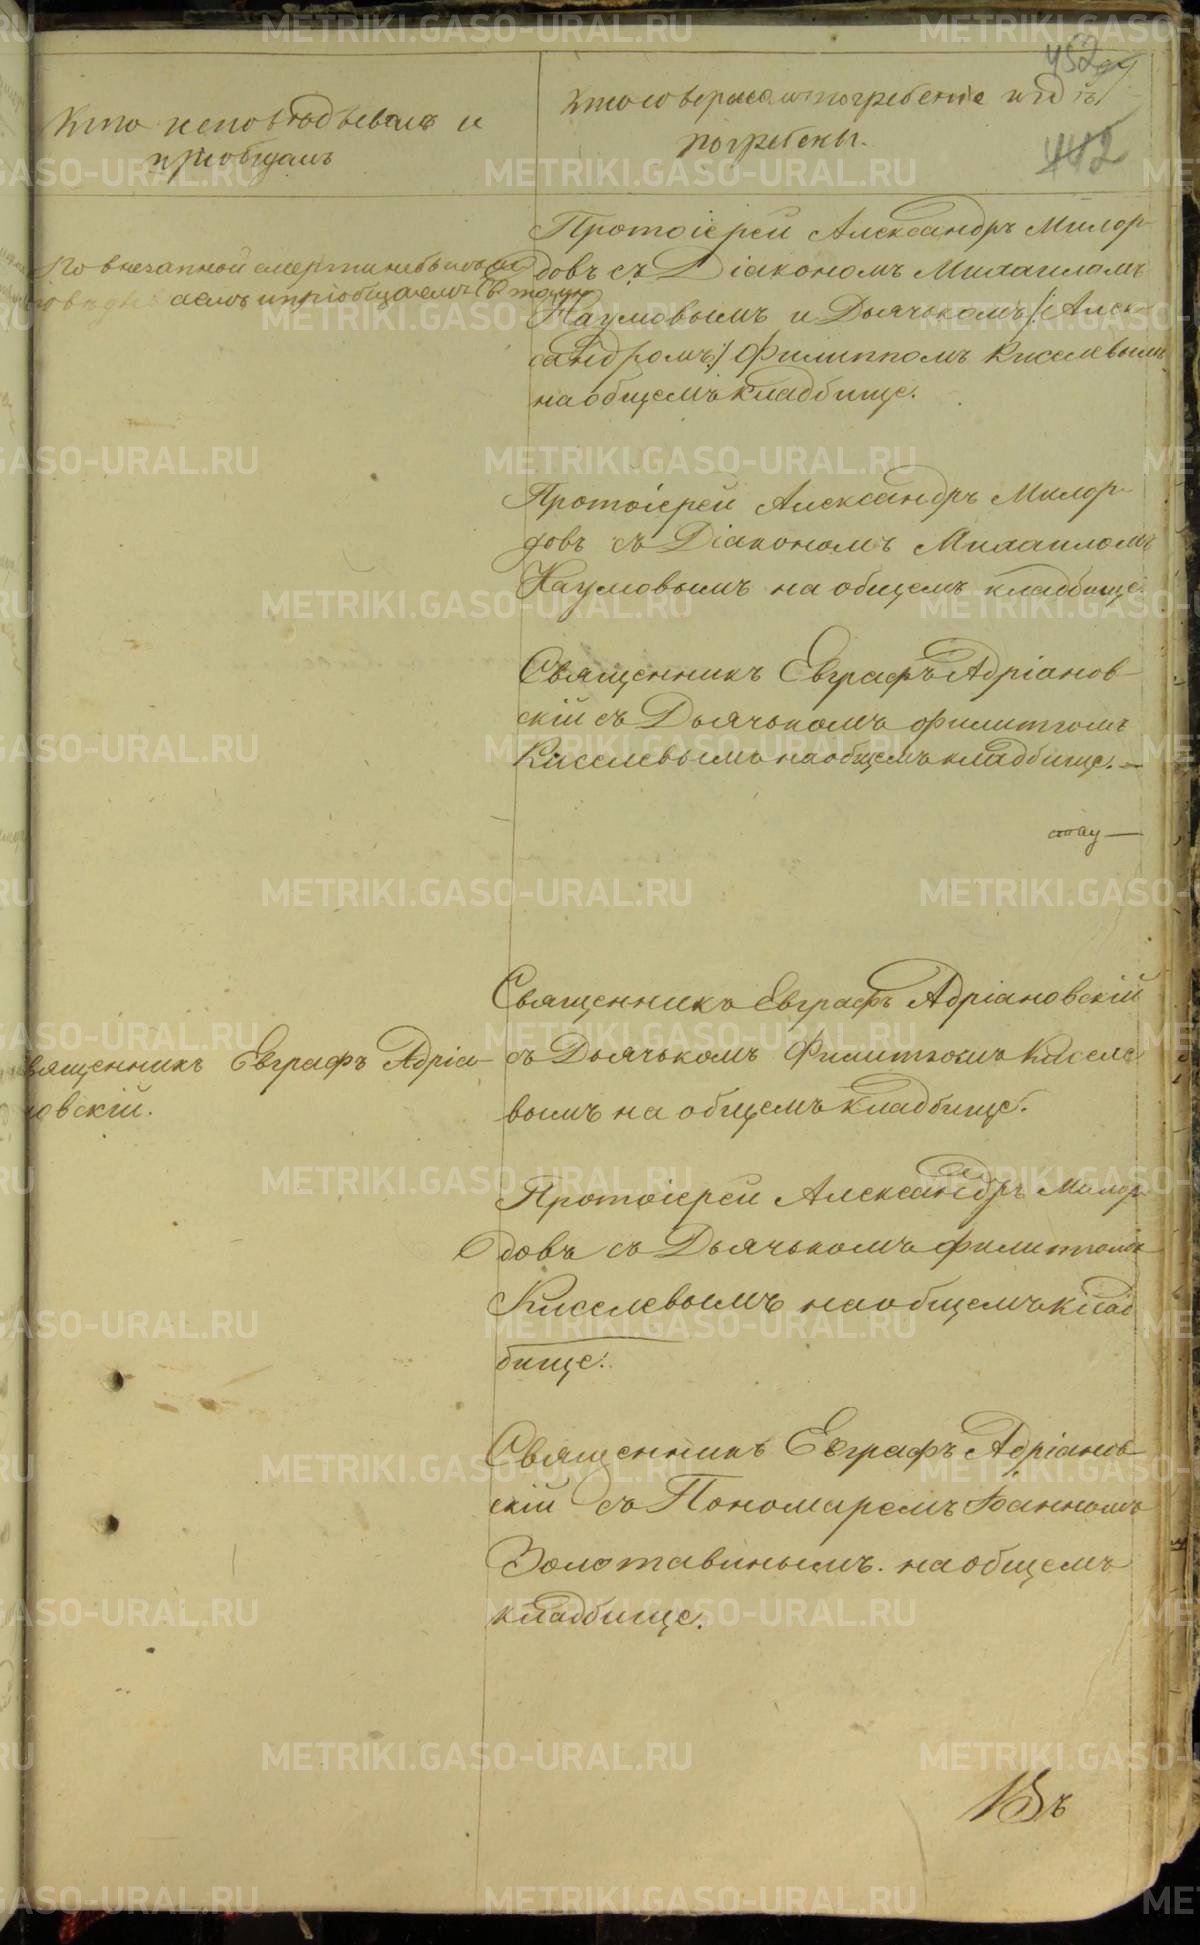 452
442
Кто исповѣдывалъ и
пріобщалъ
Кто совершалъ погребеніе и гдѣ
погребены.
По внезапной смерти небылъ ис
аемъ и пріобщаемъ
Протоіерей Александръ Милор-
довъ съ Діакономъ Михаиломъ
Наумовымъ и Дьячькомъ /: Алек-
сандромъ :/ Филиппомъ Киселевымъ
на общемъ кладбище.
Протоіерей Александръ Милор-
довъ съ Діакономъ Михаиломъ
Наумовымъ на общемъ кладбище.
Священникъ Евграфъ Адріанов-
скій съ Дьячькомъ Филиппомъ
Киселевымъ на общемъ кладбище.—
Священникъ Евграфъ Адріановскій
съ Дьячькомъ Филиппомъ Киселе
вымъ на общемъ кладбище.
вященникъ Евграфъ Адріа-
новскій.
Протоіерей Александръ Милор-
довъ съ Дьячькомъ Филиппомъ
Киселевымъ на общемъ клад
бище.
Священникъ Евграфъ Адріанов-
скій съ Пономаремъ Іоанномъ
Золотавинымъ на общемъ
кладбище.
METRIKI.GASO-URAL.RU